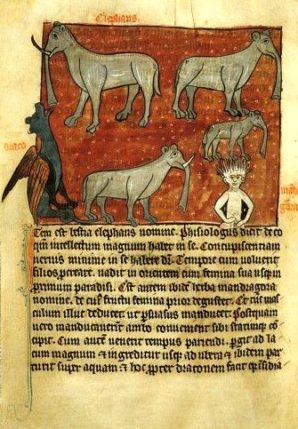 Elephans
draco
Item est bestia elephans nomine. Phisiologus dicit de eo
qm intellectum magnum habet in se. Concupiscentiam
minime in se habere dr. Tempore cum uoluerit
filios pcreare. uadit in orientem cum femina sua usq in
primum paradisi. Est autem ibidē herba mandragora
nomine. de cui fructu femina prior degustet. Et mas
culum illuc deducet. ut psuasus manducet. Postquam
uero manducauerint ambo conueniunt sibi statimq; co
cipit. Cum autē uenerit tempus pariendi. pgit ad la
cum magnum & ingreditur usq ad ubera & ibidem par
turit super aquam & hoc ppter draconem facit insidia